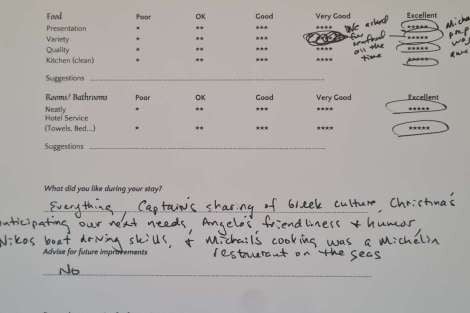 Food Poor OK Good Very Good Excellent
Presentation * ** *** **** *****
Variety * ** *** *****
Quality * ** *** **** *****
Kitchen (clean) * ** *** **** *****
we asked
for
seafood
all the
time
Suggestions
Rooms/ Bathrooms Poor OK Good Very Good Excellent
Neatly * ** *** **** *****
Hotel Service
(Towels, Bed...) * ** *** **** *****
Suggestions
What did you like during your stay?
Everything, Captain's sharing of Greek culture, Christina's
anticipating our next needs, Angelo's friendliness & humor,
Nikos boat driving skills, & Michail's cooking was a Michelin
restaurant on the seas
Advise for future improvements
No